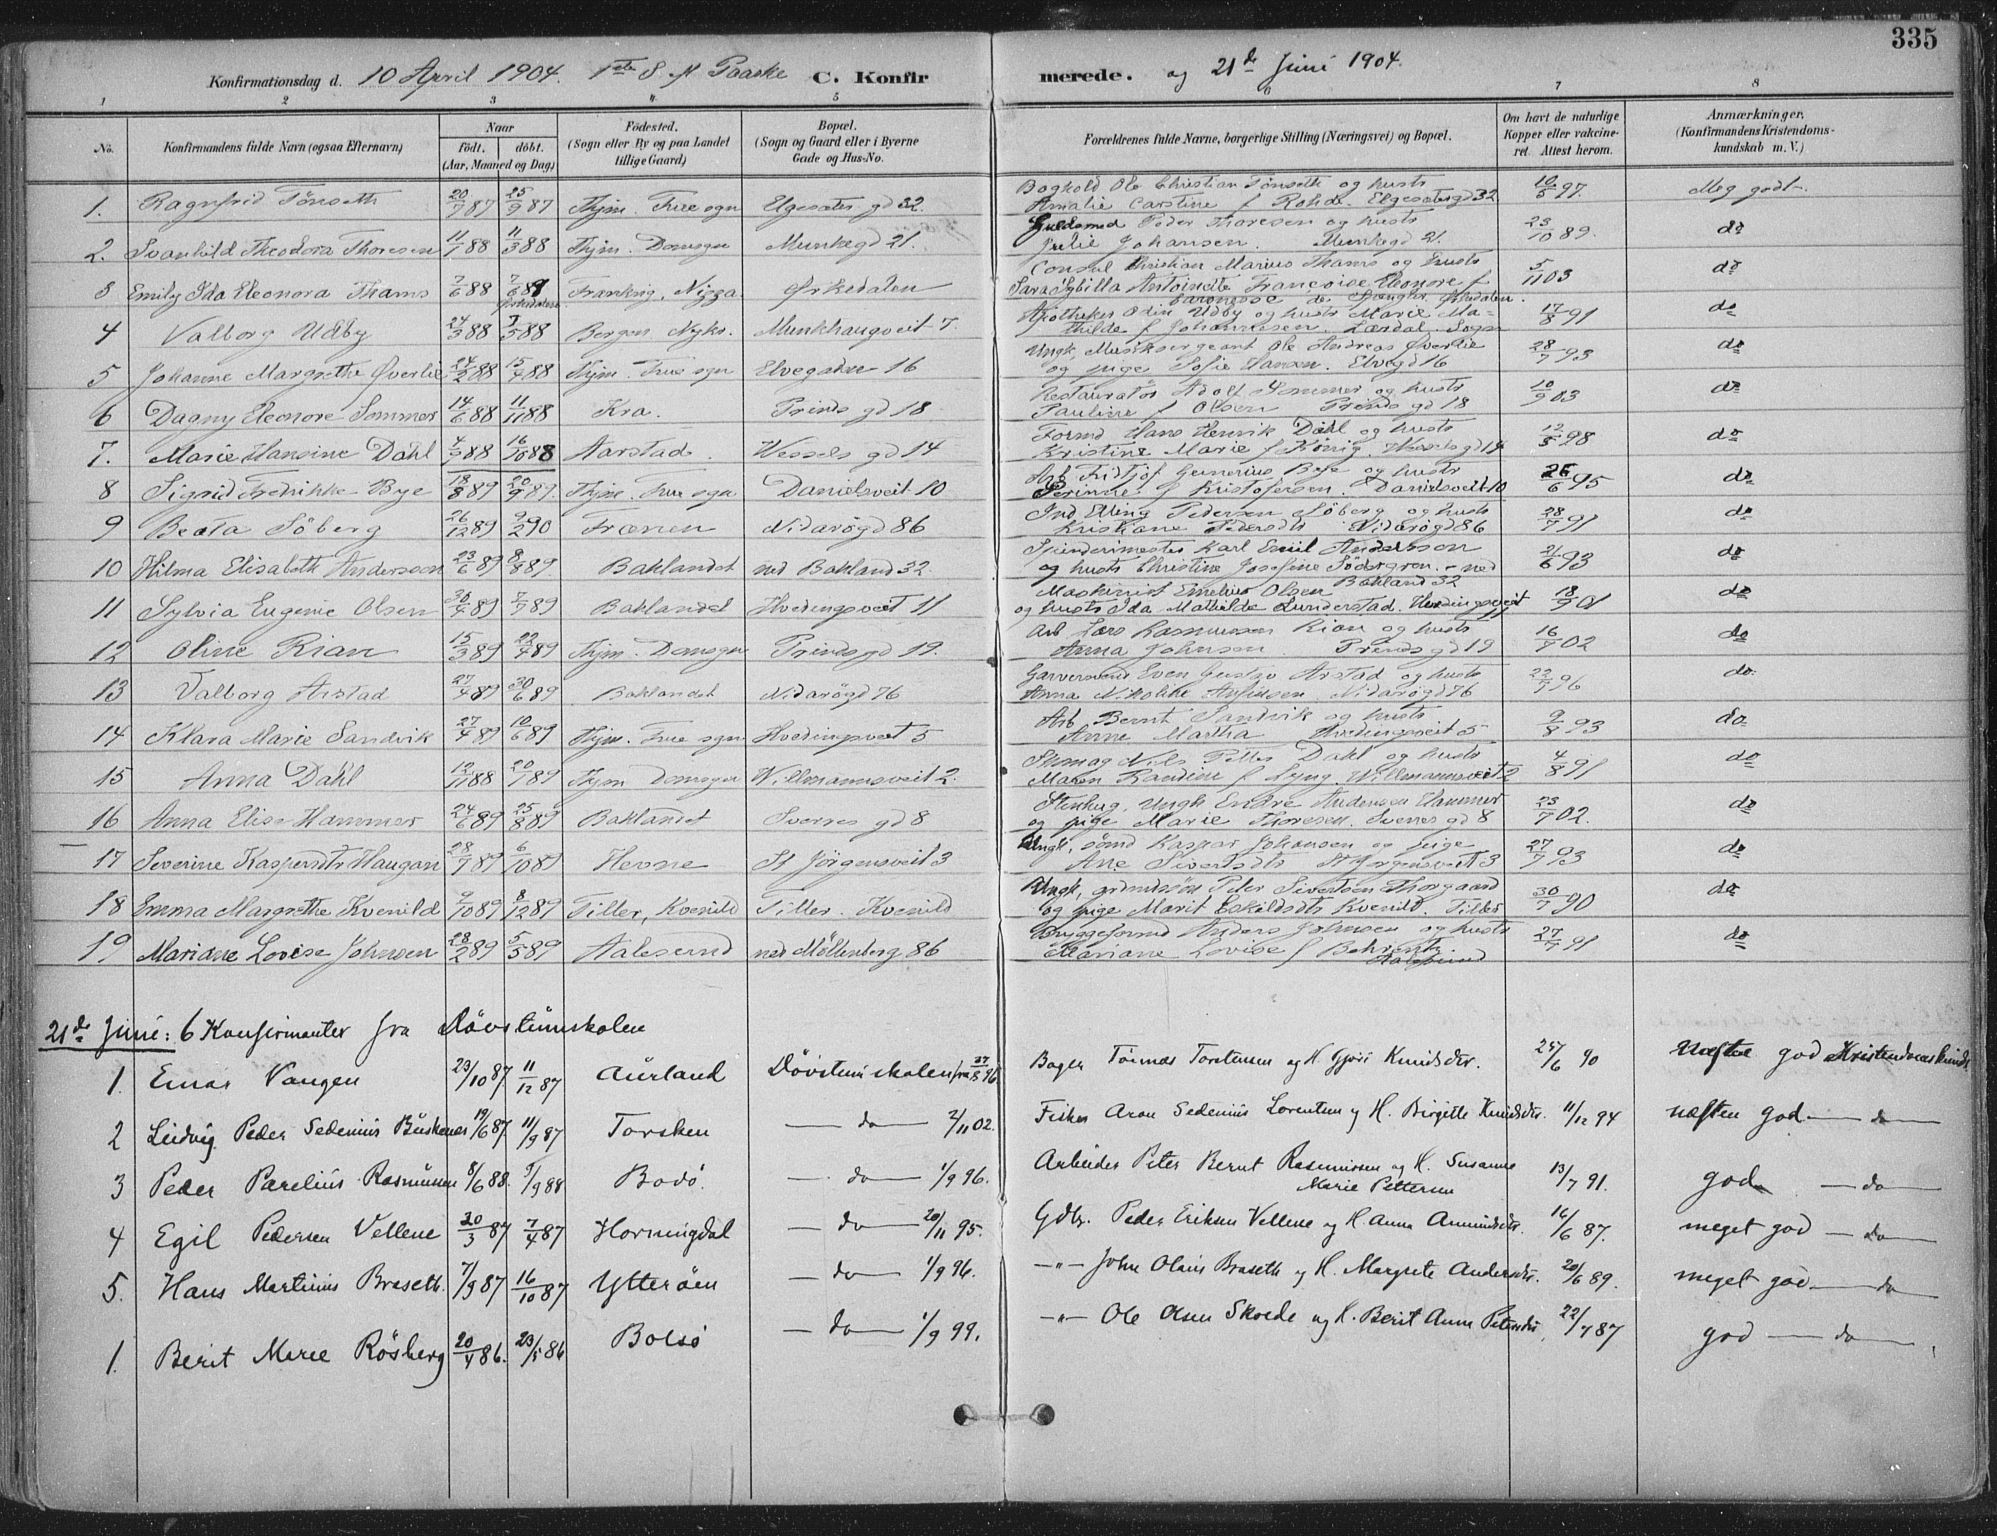 335
Konfirmationsdag d. 10 April 1904. 1ste S. f. Paaske C. Konfirmerede. og 21de Juni 1904.
1 2 3 4. 5 6 7 8
No. Konfirmandens fulde Navn (ogsaa Efternavn) Naar födt. döbt. (Aar, Maaned og Dag) Födested. (Sogn eller By og paa Landet tillige Gaard) Bopæl. (Sogn og Gaard eller i Byerne Gade og Hus-No. Forældrenes fulde Navne, borgerlige Stilling (Næringsvei) og Bopæl. Om havt de naturlige Kopper eller vakcineret. Attest herom. Anmærkninger. (Konfirmandens Kristendomskundskab m. V.)
1. Ragnfrid Tönseth 20/7 87 25/9 87 Thjm. Frue sogn Elgesæter gd 32. Boghold Ole Christian Tönseth og hustr Amalie Carstine f Rohde. Elgesætergd 32 10/5 97. Meg godt
2. Svanhild Theodora Thoresen 11/1 88 11/3 88 Thjm. Domsogn Munkegd 21. Guldsmed Peder Thoresen og hustr Julie Johansen. Munkegd 21. 23/10 89. do
3 Emily Ida Eleonora Thams 7/6 88 7/6 89 Orkedalen Frankrig, Nizza. Ørkedalen Consul Christian Marius Thams og hustr Sara Sybilla Antoinette Francoise Eleonore f baronesse de Orkedalen. 5/11 03 do
4 Valborg Udby 24/3 88 7/5 88 Bergen Nykr. Munkhaugveit 7 Apotheker Odin Udby og hustr Marie Mathilde f Johannesen. Lærdal. Sogn 17/8 91 do
5 Johanne Margrethe Øverlie 24/2 88 15/4 88 Thjm. Frue sogn Elvegaden 16 Ungk. Musiksergeant Ole Andreas Øverlie og pige Sofie Hansen. Elvegd 16 28/7 93 do
6 Dagny Eleonore Sommer 14/6 88 11/11 88 Kra. Prinds gd 18 Restauratör Adolf Sommer og hustr Pauline f Olsen Prinds gd 18 10/9 03 do
7. Marie Hansine Dahl 4/9 88 16/10 88 Aarstad. Wessels gd 14 Formd Hans Henrik Dahl og hustr Kristine Marie f König. Wessels gd 14 12/5 98 do
8 Sigrid Fredrikke Bye 18/8 89 20/9 89. Thjm. Frue sogn Danielsveit 10 Arb Fridtjof Bye og hustr Serinne f Kristofersen. Danielsveit 10 26/6 95 do
9 Beata Söberg 26/12 89 9/2 90 Frænen Nidarögd 86 Ind Elling Pedersen Söberg og hustr Kristiane Pedersdtr Nidarögd 86 28/7 91 do
10 Hilma Elisabeth Andersson 23/6 89 8/8 89. Baklandet ned Bakland 32. Spinderimester Karl Emil Andersson og hustr Christine Josefine Södergren. - ned Bakland 32 21/6 93 do
11 Sylvia Eugenie Olsen 30/4 89 7/7 89 Baklandet Hvedingsveit 11 Maskinist Emelius Olsen og hustr Ida Mathilde Lunderstad. Hvedingsveit 11 18/9 01 do
12 Oline Rian 15/3 89 22/4 89 Thjm. Domsogn Prindsgd 19. Arb Lars Rasmussen Rian og hustr Anna Johnsen Prindsgd 19 16/7 02 do
13 Valborg Arstad 27/4 89 30/6 89 Baklandet Nidarögd 76 Garversvend Even Gustav Arstad og hustr Anna Nikoline Anfinsen. Nidarögd 76 22/7 96 do.
14 Klara Marie Sandvik 27/4 89 10/6 89 Thjm. Frue sogn Hvedingsveit 5 Arb Bernt Sandvik og hustr Anne Martha Hvedingsveit 5 9/8 93 do
15 Anna Dahl 12/11 88 20/1 89 Thjm Domsogn Willmannsveit 2. Nils Petter Dahl og hustr Maren Randine f Lyng Willmannsveit 2 4/8 91 do
16 Anna Elise Hammer 24/6 89 25/8 89 Baklandet Sverres gd 8 Stenhug. Ungk Endre Andersen Hammer og pige Marie Thoresen. Sverres gd 8 23/7 02. do
17 Severine Kaspersdtr Haugan 28/7 89 6/10 89 Hevne St Jörgensveit 3 Ungk. sömd Kaspar Johansen og pige Ane Sivertsdtr St Jörgensveit 3 27/7 93 do
18 Emma Margrethe Kvenild 9/10 89 8/12 89 Tiller, Kvenild Tiller. Kvenild Ungk, grdmdssön Peder Sivertsen Thorgaard og pige Marit Eskildsdtr Kvenild. Tiller 30/7 90 do
19 Mariane Lovise Johnsen 28/2 89 5/5 89 Aalesund ned Möllenberg 86 Bryggeformd Anders Johnsen og hustr Mariane Lovise f Aalesund 27/7 91 do
21de Juni: 6 Konfirmanter fra Dövstumskolen
1. Einar Vangen 23/10 87 11/12 87 Aurland Dövstumskolen fra 27/8 96 Bager Tomas Torstensen og H. Gjöri Knudsdtr. 25/6 90 Næsten god Kristendomskundsk
2 Ludvig Peder Sedenius Buskenes 19/6 87 11/9 87 Torsken - do - 2/11 02. Fisker Aron Sedenius Lorentsen og H. Birgitte Knudsdtr. 11/12 94 næsten god - do -
3 Peder Parelius Rasmussen 8/6 88 9/9 88 Bodö. - do - 1/9 96. Arbeider Peter Bernt Rasmussen og H. Susanne Marie Pettersen 13/7 91. god - do -
4 Egil Pedersen Vellene 20/3 87 7/4 87 Hornindal - do - 20/11 95. Gdbr. Peder Eriksen Vellene og H. Anna Amundsdtr. 16/6 87. meget god - do -
5. Hans Martinius Braseth. 7/9 87 16/10 87 Ytteröen - do - 1/9 96. -"- John Olaus Braseth og H. Margrete Andersdtr. 20/6 89. meget god - do -
1. Berit Marie Rösberg 20/4 86. 23/5 86 Bolsö - do - 1/9 99. -"- Ole Olsen Skrede og H. Berit Anne Petersdtr. 22/7 87 god - do -